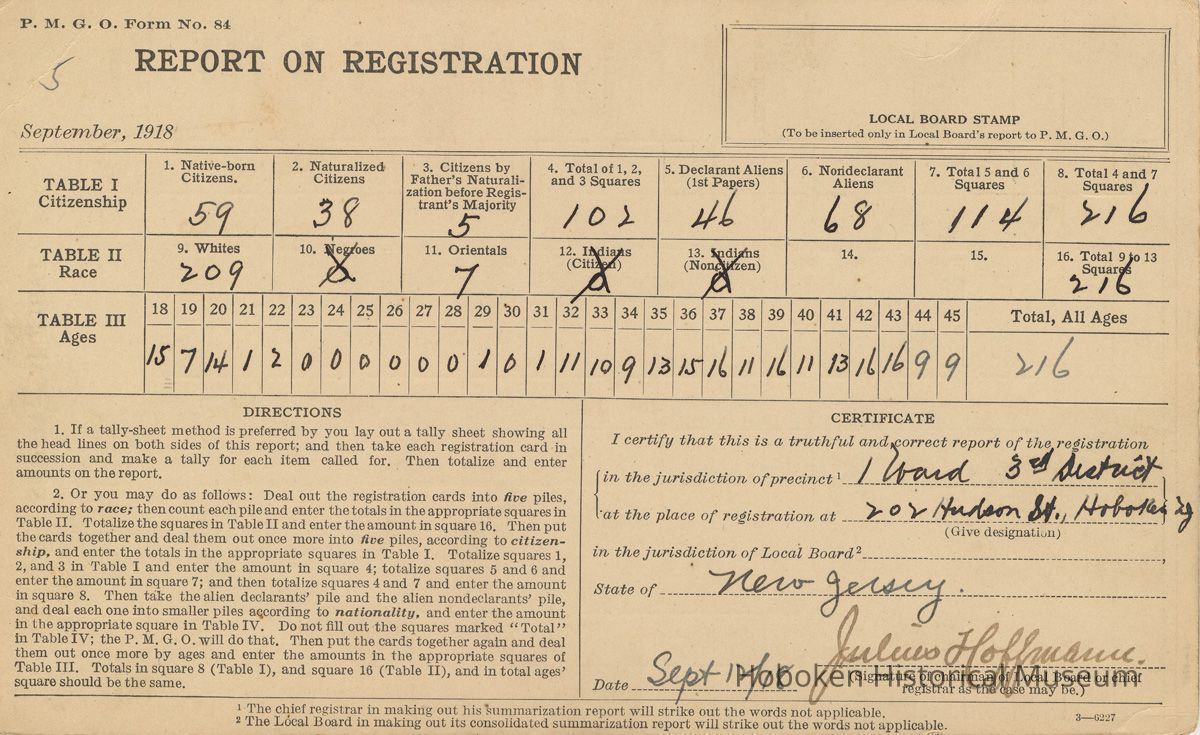 P. M. G. O. Form No. 84
5
REPORT ON REGISTRATION
September, 1918
LOCAL BOARD STAMP
(To be inserted only in Local Board's report to P. M. G. O.)
TABLE I
Citizenship
1. Native-born Citizens.
59
2. Naturalized Citizens
38
3. Citizens by Father's Naturalization before Registrant's Majority
5
4. Total of 1, 2, and 3 Squares
102
5. Declarant Aliens (1st Papers)
46
6. Nondeclarant Aliens
68
7. Total 5 and 6 Squares
114
8. Total 4 and 7 Squares
216
TABLE II
Race
9. Whites
209
10. Negroes
11. Orientals
7
12. Indians (Citizen)
13. Indians (Noncitizen)
14.
15.
16. Total 9 to 13 Squares
216
TABLE III
Ages
18 19 20 21 22 23 24 25 26 27 28 29 30 31 32 33 34 35 36 37 38 39 40 41 42 43 44 45 Total, All Ages
15 7 14 1 2 0 0 0 0 0 0 1 0 1 11 10 9 13 15 16 11 16 11 13 16 16 9 9 216
DIRECTIONS
1. If a tally-sheet method is preferred by you lay out a tally sheet showing all
the head lines on both sides of this report; and then take each registration card in
succession and make a tally for each item called for. Then totalize and enter
amounts on the report.
2. Or you may do as follows: Deal out the registration cards into five piles,
according to race; then count each pile and enter the totals in the appropriate squares in
Table II. Totalize the squares in Table II and enter the amount in square 16. Then put
the cards together and deal them out once more into five piles, according to citizen-
ship, and enter the totals in the appropriate squares in Table I. Totalize squares 1,
2, and 3 in Table I and enter the amount in square 4; totalize squares 5 and 6 and
enter the amount in square 7; and then totalize squares 4 and 7 and enter the amount
in square 8. Then take the alien declarants' pile and the alien nondeclarants' pile,
and deal each one into smaller piles according to nationality, and enter the amount
in the appropriate square in Table IV. Do not fill out the squares marked "Total"
in Table IV; the P. M. G. O. will do that. Then put the cards together again and deal
them out once more by ages and enter the amounts in the appropriate squares of
Table III. Totals in square 8 (Table I), and square 16 (Table II), and in total ages'
square should be the same.
CERTIFICATE
I certify that this is a truthful and correct report of the registration
in the jurisdiction of precinct¹ 1 Ward 3rd District
at the place of registration at 202 Hudson St., Hoboken NJ
(Give designation)
in the jurisdiction of Local Board²
State of New Jersey.
Julius Hoffmann.
(Signature of chairman of Local Board or chief
registrar as the case may be.)
Date Sept 12/18
Hoboken Historical Museum
¹ The chief registrar in making out his summarization report will strike out the words not applicable.
² The Local Board in making out its consolidated summarization report will strike out the words not applicable.
3—6227